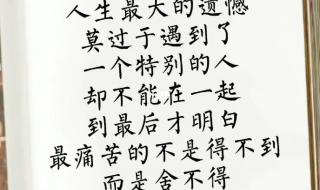 人生最大的遗憾
莫过于遇到了
一个特别的人
却不能在一起
到最后才明白
最痛苦的不是得不到
而是舍不得